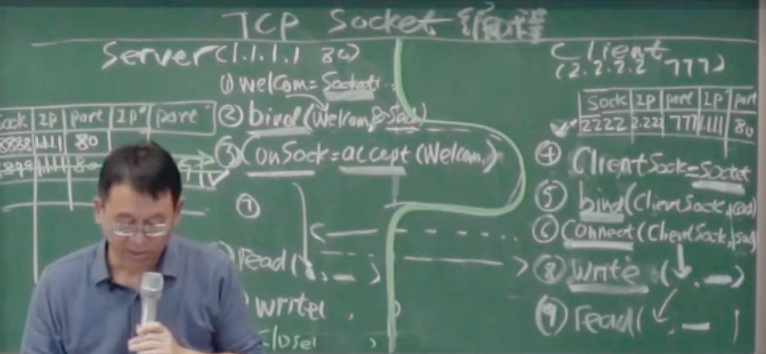 TCP Socket 編程
Server (1.1.1.1 80)
① welcom=Socket(...
② bind(Welcom,&Sad)
③ ConSock=accept(Welcom,)
⑦
read( , — )
write( , )
close( )
Sock IP port IP' port'
8888 1.1.1.1 80
Client
(2.2.2.2 777)
Sock IP port IP' port
2222 2.222 777 1.1.1.1 80
④ ClientSock=Socket
⑤ bind(ClientSock,&ad)
⑥ Connect(ClientSock,&sad)
⑧ write ( , — )
⑨ read( , — )